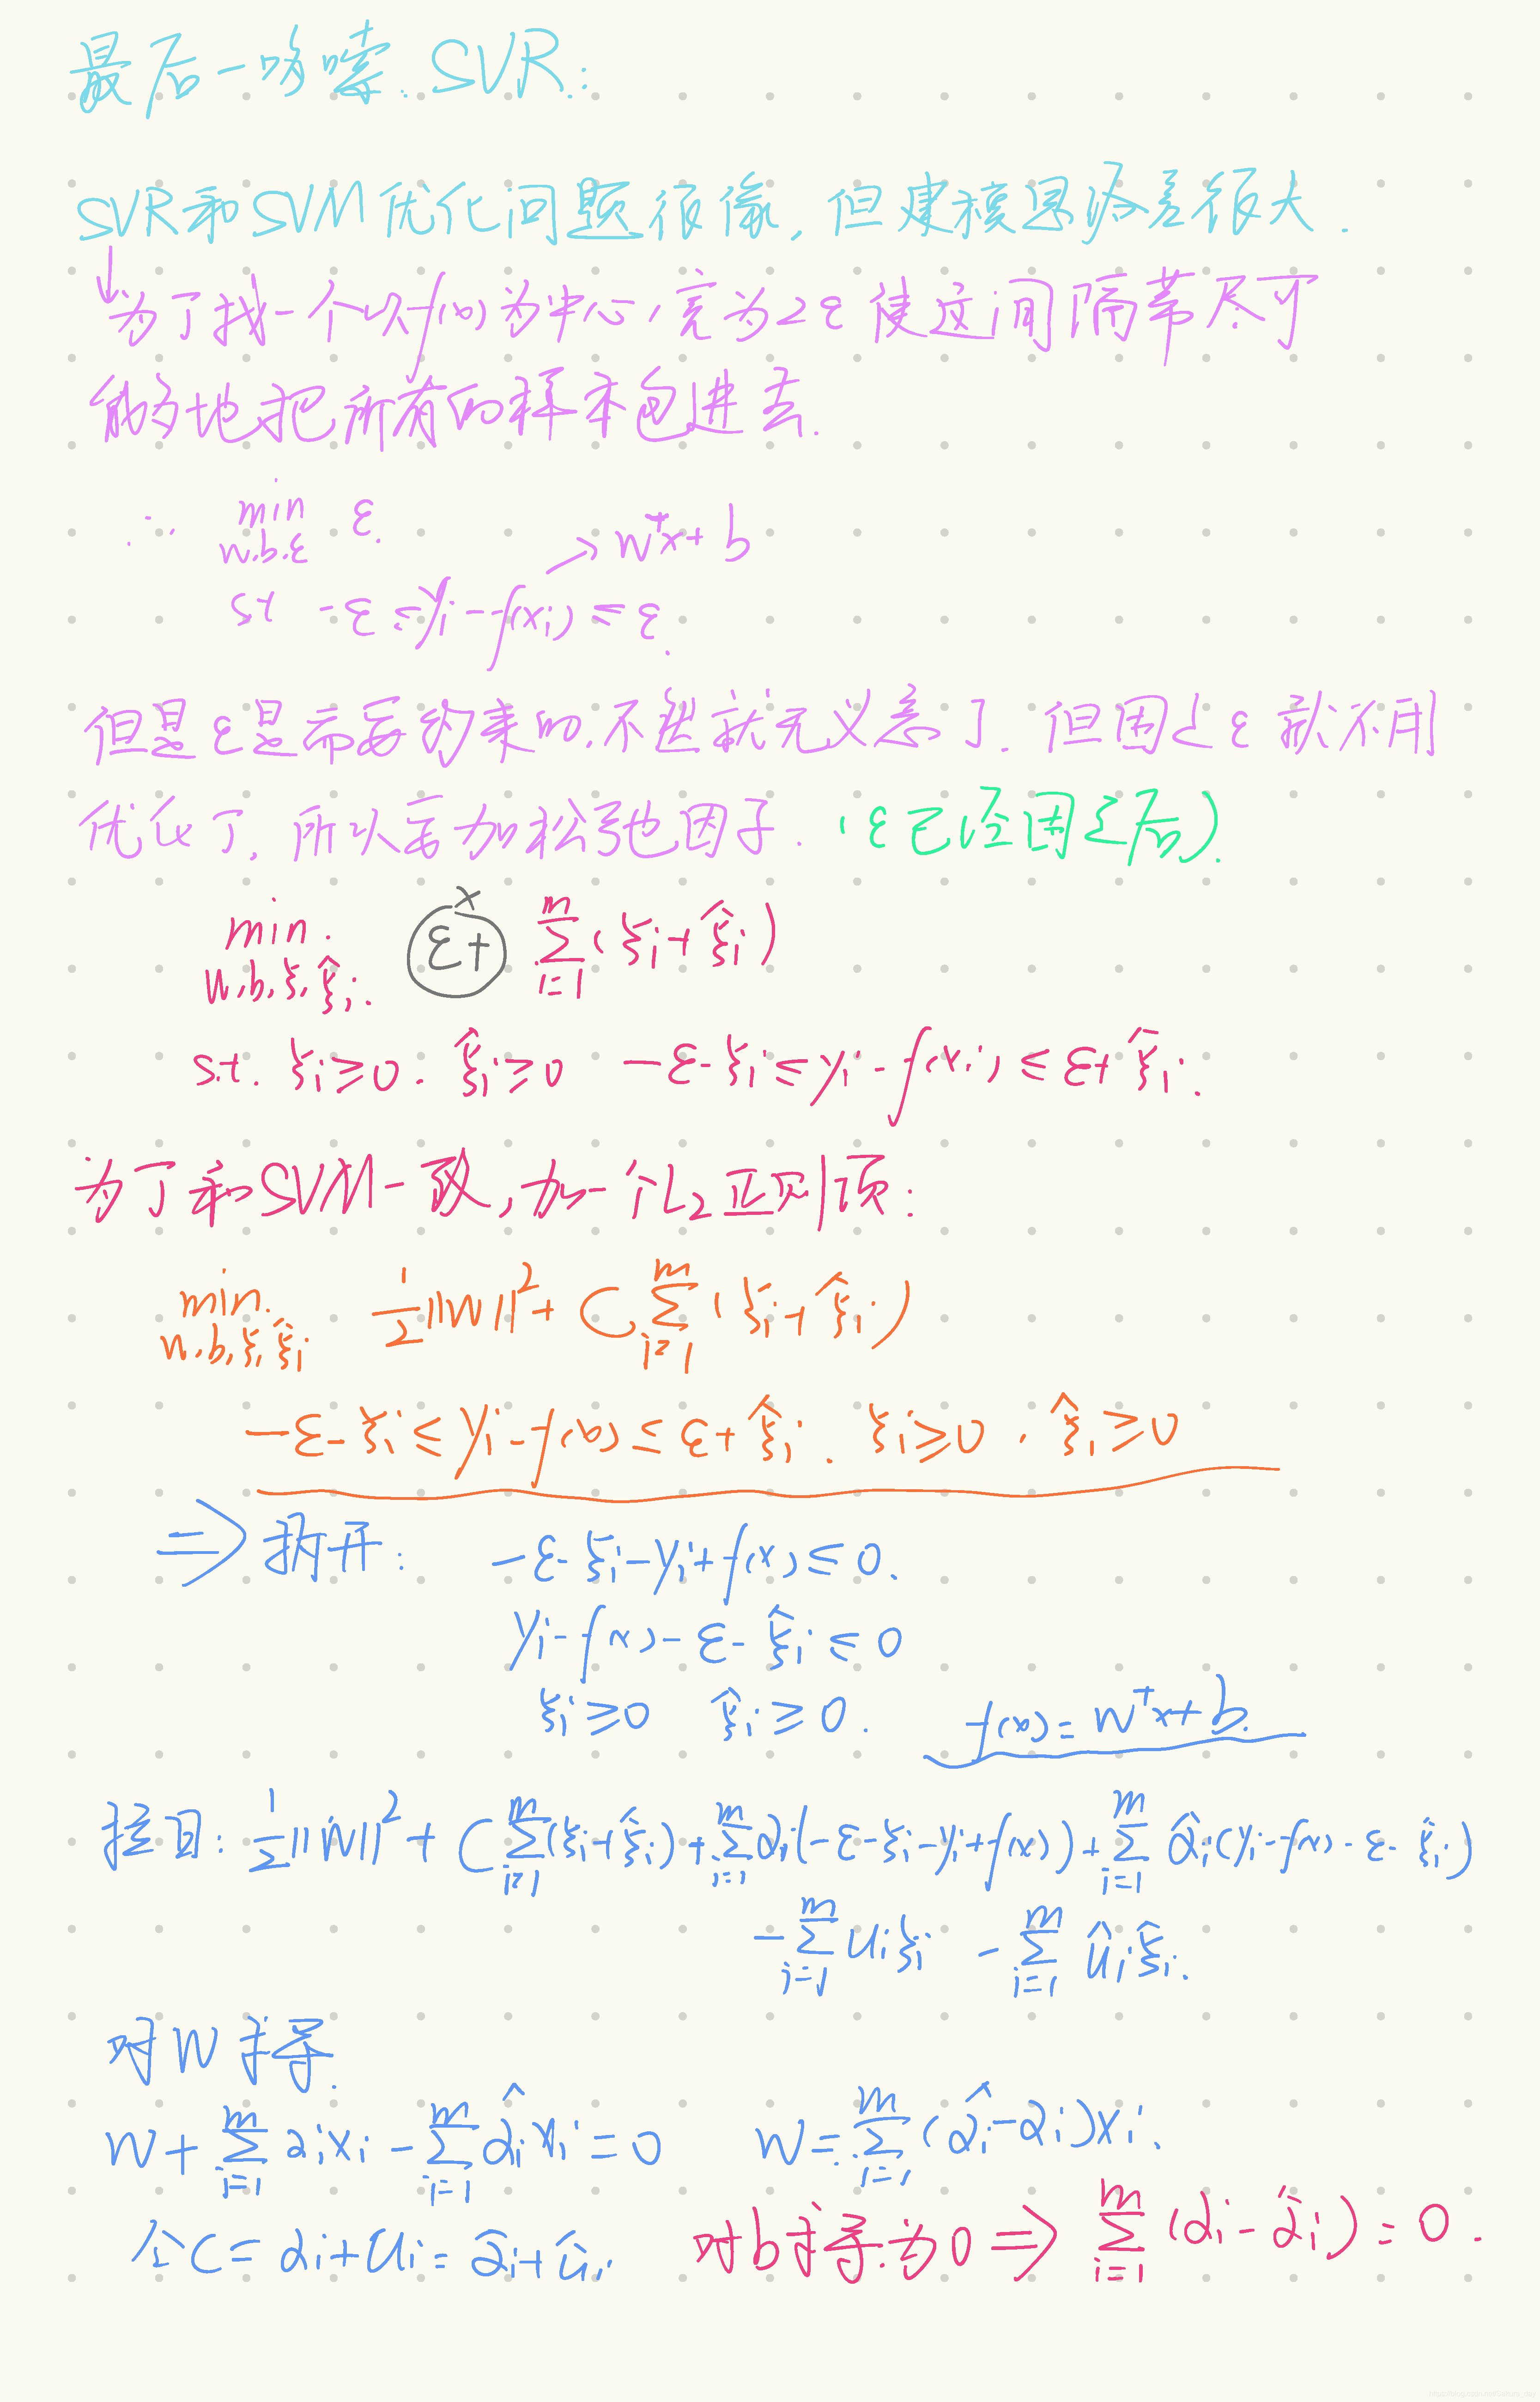 最后一哆嗦. SVR:
SVR和SVM优化问题很像, 但建模思路差很大.
↓为了找一个以f(x)为中心, 宽为2ε 使这间隔带尽可
能多地把所有的样本包进去.
∴ min ε.
w.b.ε
→ wᵀx+b
st -ε ≤ yi - f(xi) ≤ ε.
但是ε是需要约束的, 不然就无义意了. 但固定ε就不用
优化了, 所以要加松弛因子. (ε已经固定后).
min. (ε+)ˣ Σᵢ₌₁ᵐ (ξi+ξ̂i)
w,b,ξ,ξ̂i.
s.t. ξi≥0. ξ̂i≥0 -ε-ξi ≤ yi-f(xi) ≤ ε+ξ̂i.
为了和SVM一致, 加一个L₂正则项:
min. ½||W||²+ C Σᵢ₌₁ᵐ (ξi+ξ̂i)
w.b,ξ,ξ̂i
-ε-ξi ≤ yi-f(x) ≤ ε+ξ̂i. ξi≥0, ξ̂i≥0
⇒ 拆开: -ε-ξi-yi+f(x) ≤ 0.
yi-f(x)-ε-ξ̂i ≤ 0
ξi≥0 ξ̂i≥0. f(x)=wᵀx+b.
拉日: ½||W||²+ C Σᵢ₌₁ᵐ (ξi+ξ̂i)+ Σᵢ₌₁ᵐ αi(-ε-ξi-yi+f(x))+ Σᵢ₌₁ᵐ α̂i(yi-f(x)-ε-ξ̂i)
-Σᵢ₌₁ᵐ uiξi - Σᵢ₌₁ᵐ ûiξ̂i.
对W求导.
W+ Σᵢ₌₁ᵐ αixi - Σᵢ₌₁ᵐ α̂ixi=0 W= Σᵢ₌₁ᵐ (α̂i-αi)xi.
令C=αi+ui=α̂i+ûi, 对b求导为0 ⇒ Σᵢ₌₁ᵐ (αi-α̂i)=0.